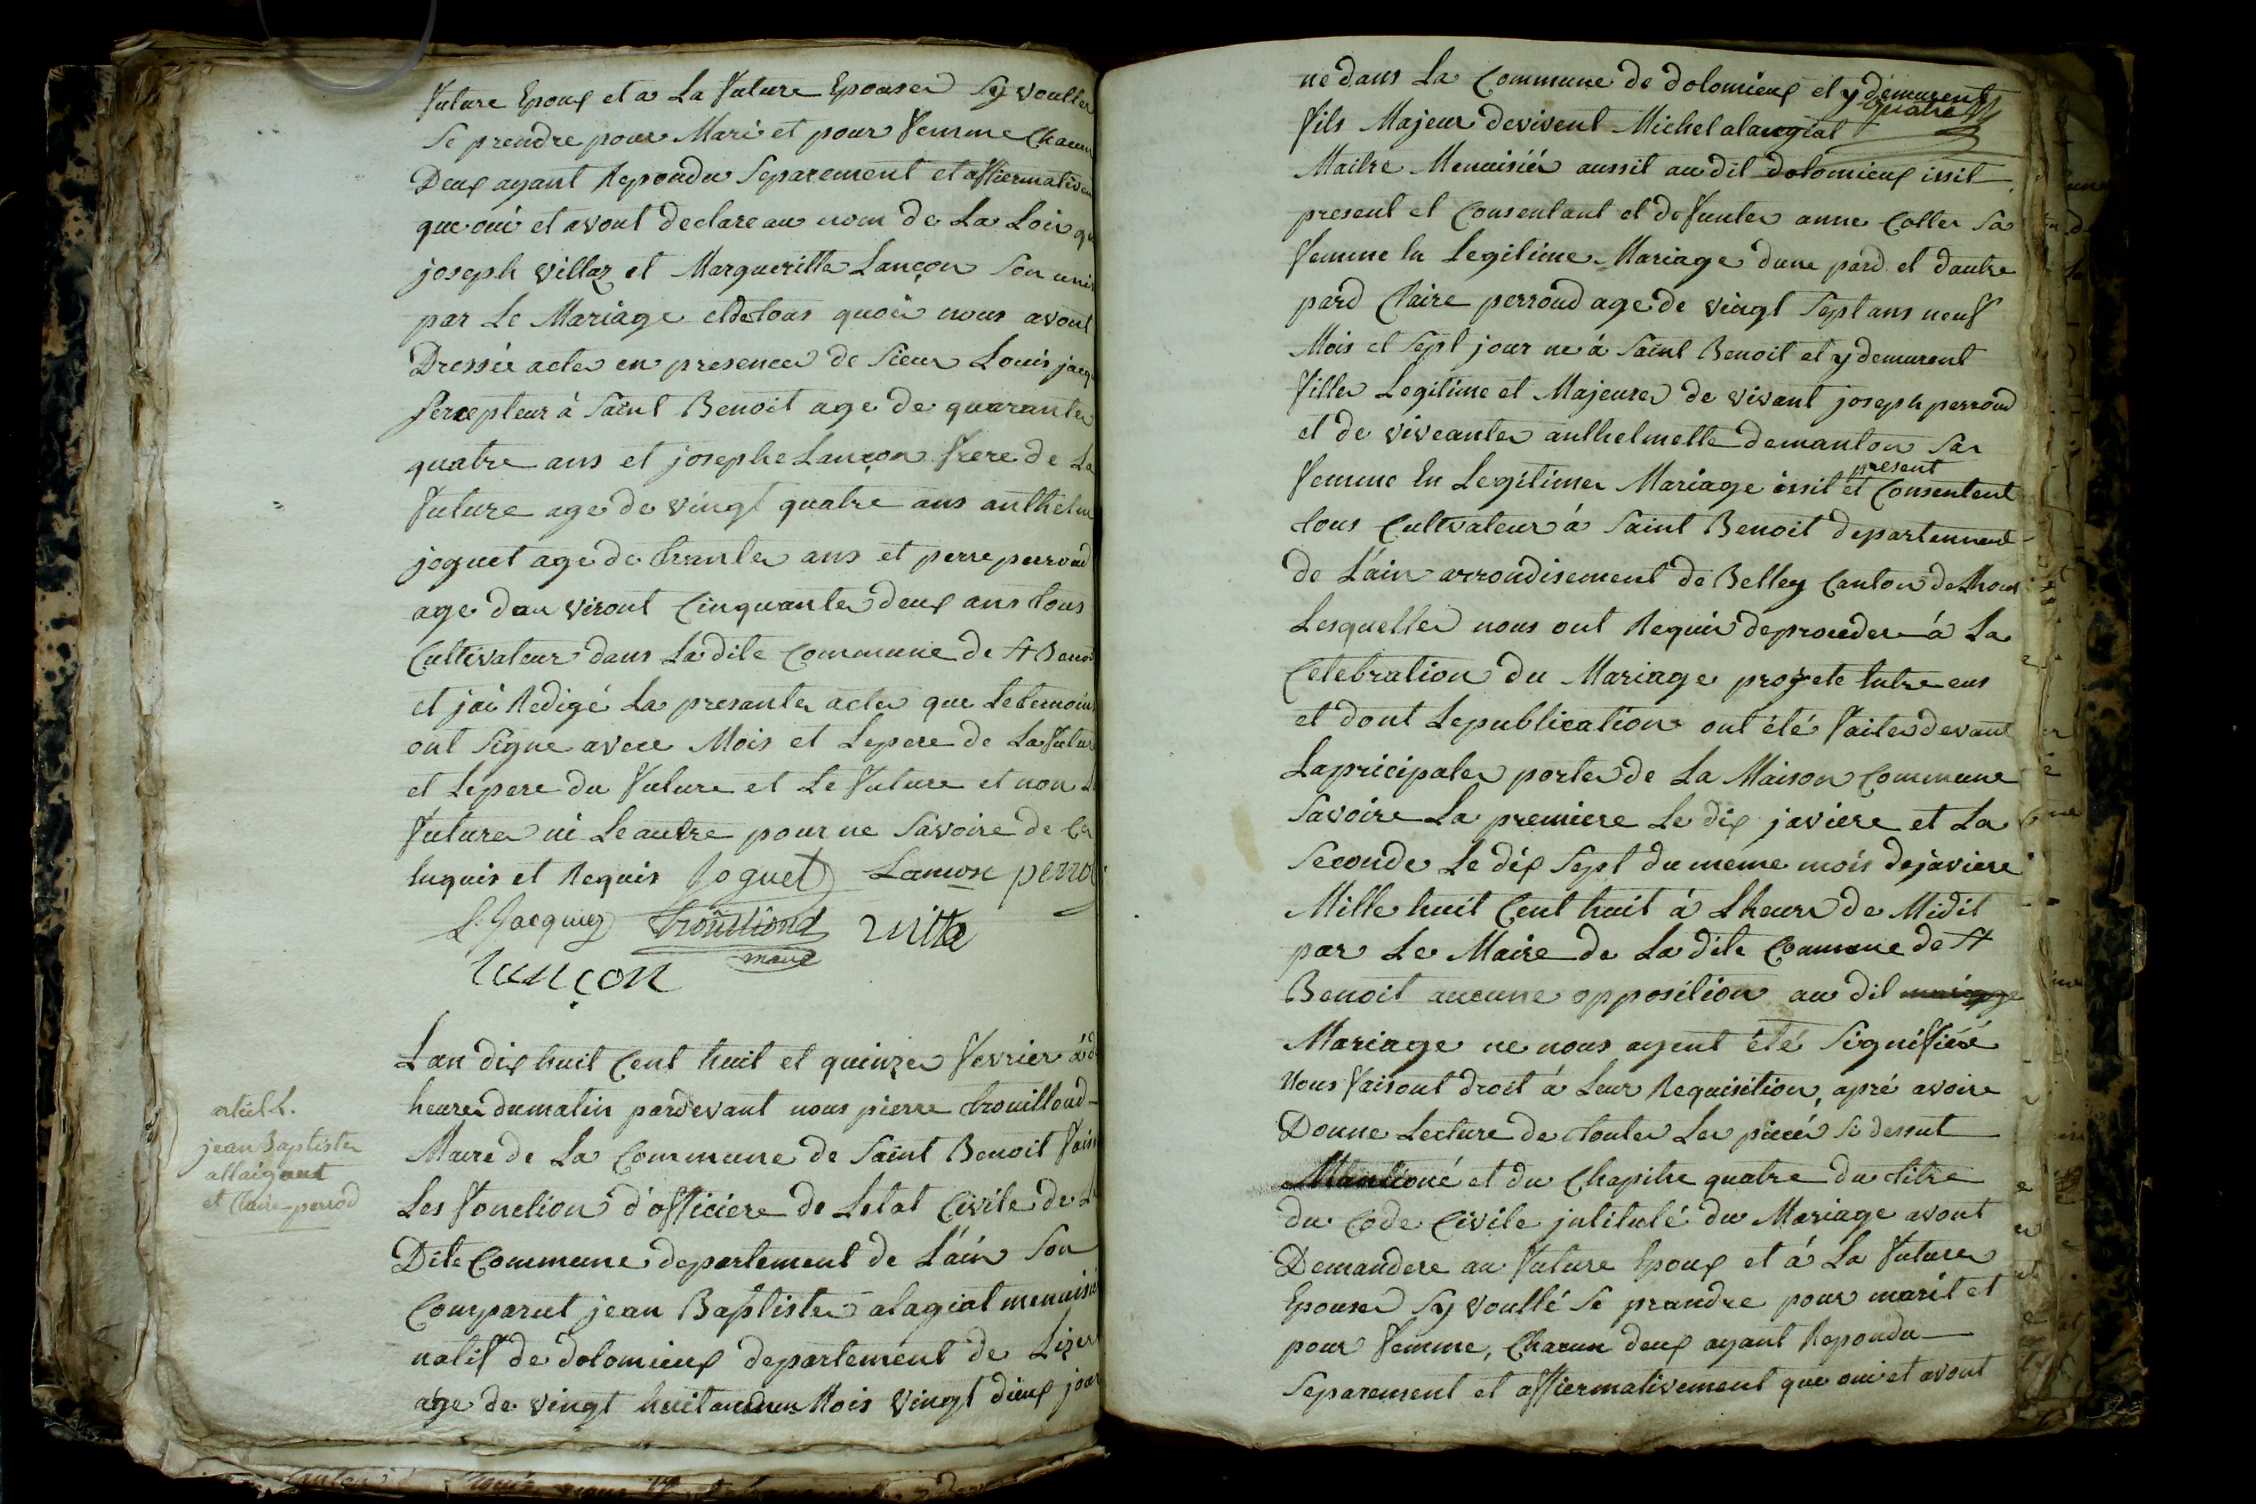 future Epoux et a La future Epouser Sy voulle
Se prendre pour Mari et pour femme Chacun
Deux ayant Repondu Separement et affiermative
que oui et avont declare au nom de La Loix
joseph villaz et Margueritte Lançon Son uni
par Le Mariage et de tous quoi nous avont
Dressée acter en presencer de Sieur Louis jacq
Percepteur à Saint Benoit age de quaranter
quatre ans et josephe Lançon frere de La
future age de vingt quatre ans anthelm
joguet age de tranter ans et perre perroud
age dan viront Cinquanter deux ans tous
Cultivateur dans Ladite Commune de St Benoi
et jai Redigé La presanter acter que Letemoin
ont Signe avece Mois et Lepere de Lafutur
et Lepere du future et Le future et non L
futurer ni Leautre pour ne Savoire de Ce
Enquis et Requis Joguet Lancon perro
L. Jacquier trouilloud vitta
maire
Lançon
Lan dix huit Cent huit et quinzer fevrier à d
heurer dumatin pardevant nous pierre trouilloud
Maire de La Commune de Saint Benoit fais
Les fonction d'officiere de Letat Civile de L
Dite Commune departement de L'ain Son
Comparut jean Baptister alagiat menuisié
natif de dolomieux departement de Lizer
age de vingt huit Mois vingt dieux jour
articl.
jean Baptister
allaigant
et Claire perrod
ne dans La Commune de dolomieux et y demurent
quatre
fils Majeur devivent Michel alaugiat
Maitre Menuisiér aussit au dit dolomieux issit
present et Consentant et defunter anne Cotter Sa
femme En Legitime Mariage dune pard et dautre
pard Claire perroud age de vingt Sept ans neuf
Mois et Sept jour ne à Saint Benoit et y demurent
filler Legitime et Majeurer de vivant joseph perroud
et de viveanter anthelmette demanton Sa
femme En Legitimer Mariage issit et Consentent
present
tous Cultivateur à Saint Benoit departement
de L'ain arrondisement de Belley Canton de
Lesqueller nous ont Requir deproceder à La
Celebration du Mariage projete Entre eus
et dont Lepublication ont été faiter devant
Lapricipaler porter de La Maison Commune
Savoire La premiere Le dix javiere et La
Seconde Le dix Sept du meme mois dejaviere
Mille huit Cent huit à Lheure de Midit
par Le Maire de La dite Commune de St
Benoit aucune opposition au dit mariage
Mariage ne nous ayent été Signifiéé
Nous faisont droit à Leur Requisition, apré avoire
Donne Lecture de touter Ler piecér Si dessut
Mantioné et du Chapitre quatre du titre
du Code Civile jntitulé du Mariage avont
Demandere au future Epoux et à La futurer
Epouser Sy voullé Se prandre pour marit et
pour femme, Chacun deux ayant Repondu
Separement et affiermativement que oui et avont